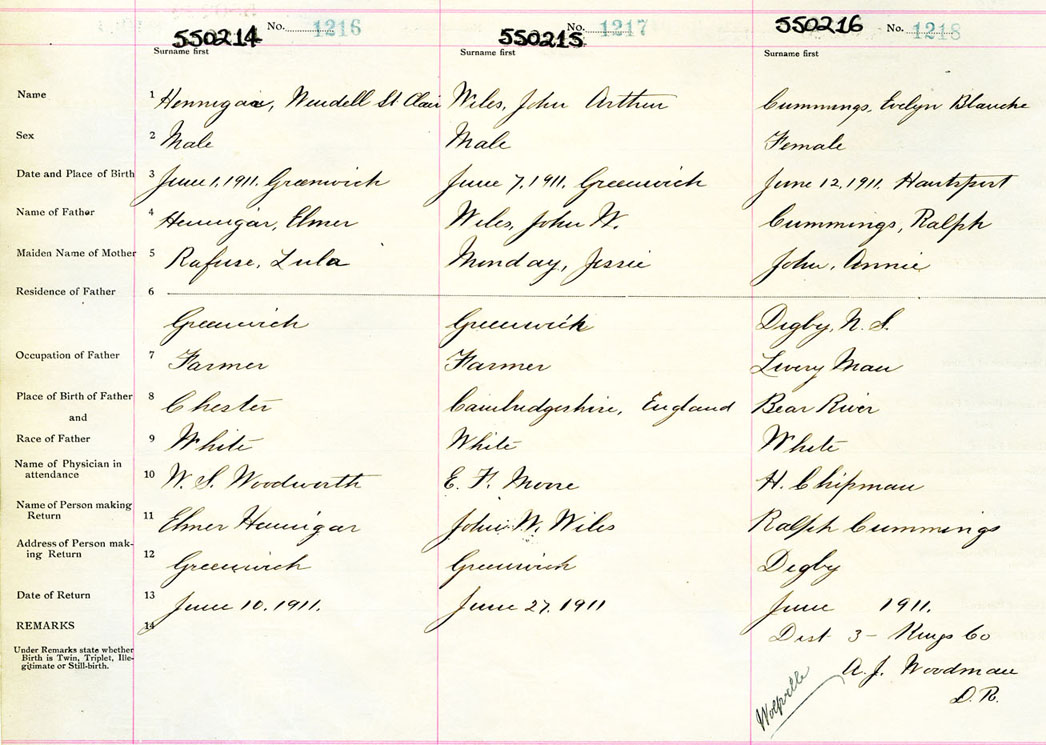 550214 No. 1216 550215 No. 1217 550216 No. 1218
Surname first Surname first Surname first
Name 1 Hennigar, Wendell St Clair Wiles, John Arthur Cummings, Evelyn Blanche
Sex 2 Male Male Female
Date and Place of Birth 3 June 1, 1911. Greenwich June 7, 1911. Greenwich June 12, 1911. Hantsport
Name of Father 4 Hennigar, Elmer Wiles, John W. Cummings, Ralph
Maiden Name of Mother 5 Rafuse, Lula Monday, Jessie John, Annie
Residence of Father 6
Greenwich Greenwich Digby, N. S.
Occupation of Father 7 Farmer Farmer Livery Man
Place of Birth of Father 8 Chester Cambridgeshire, England Bear River
and
Race of Father 9 White White White
Name of Physician in
attendance 10 W. S. Woodworth E. F. Moore H. Chipman
Name of Person making
Return 11 Elmer Hennigar John W. Wiles Ralph Cummings
Address of Person mak-
ing Return 12 Greenwich Greenwich Digby
Date of Return 13 June 10. 1911. June 27. 1911 June 1911.
REMARKS 14
Dist 3 - Kings Co
Under Remarks state whether
Birth is Twin, Triplet, Ille-
gitimate or Still-birth.
A. J. Woodman
D. R.
Wolfville